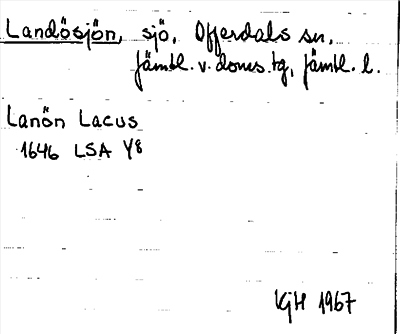 Landösjön, sjö, Offerdals sn,
Jämtl. v. doms. tg, Jämtl. l.
Lanön Lacus
1646 LSA Y8
KGH 1967